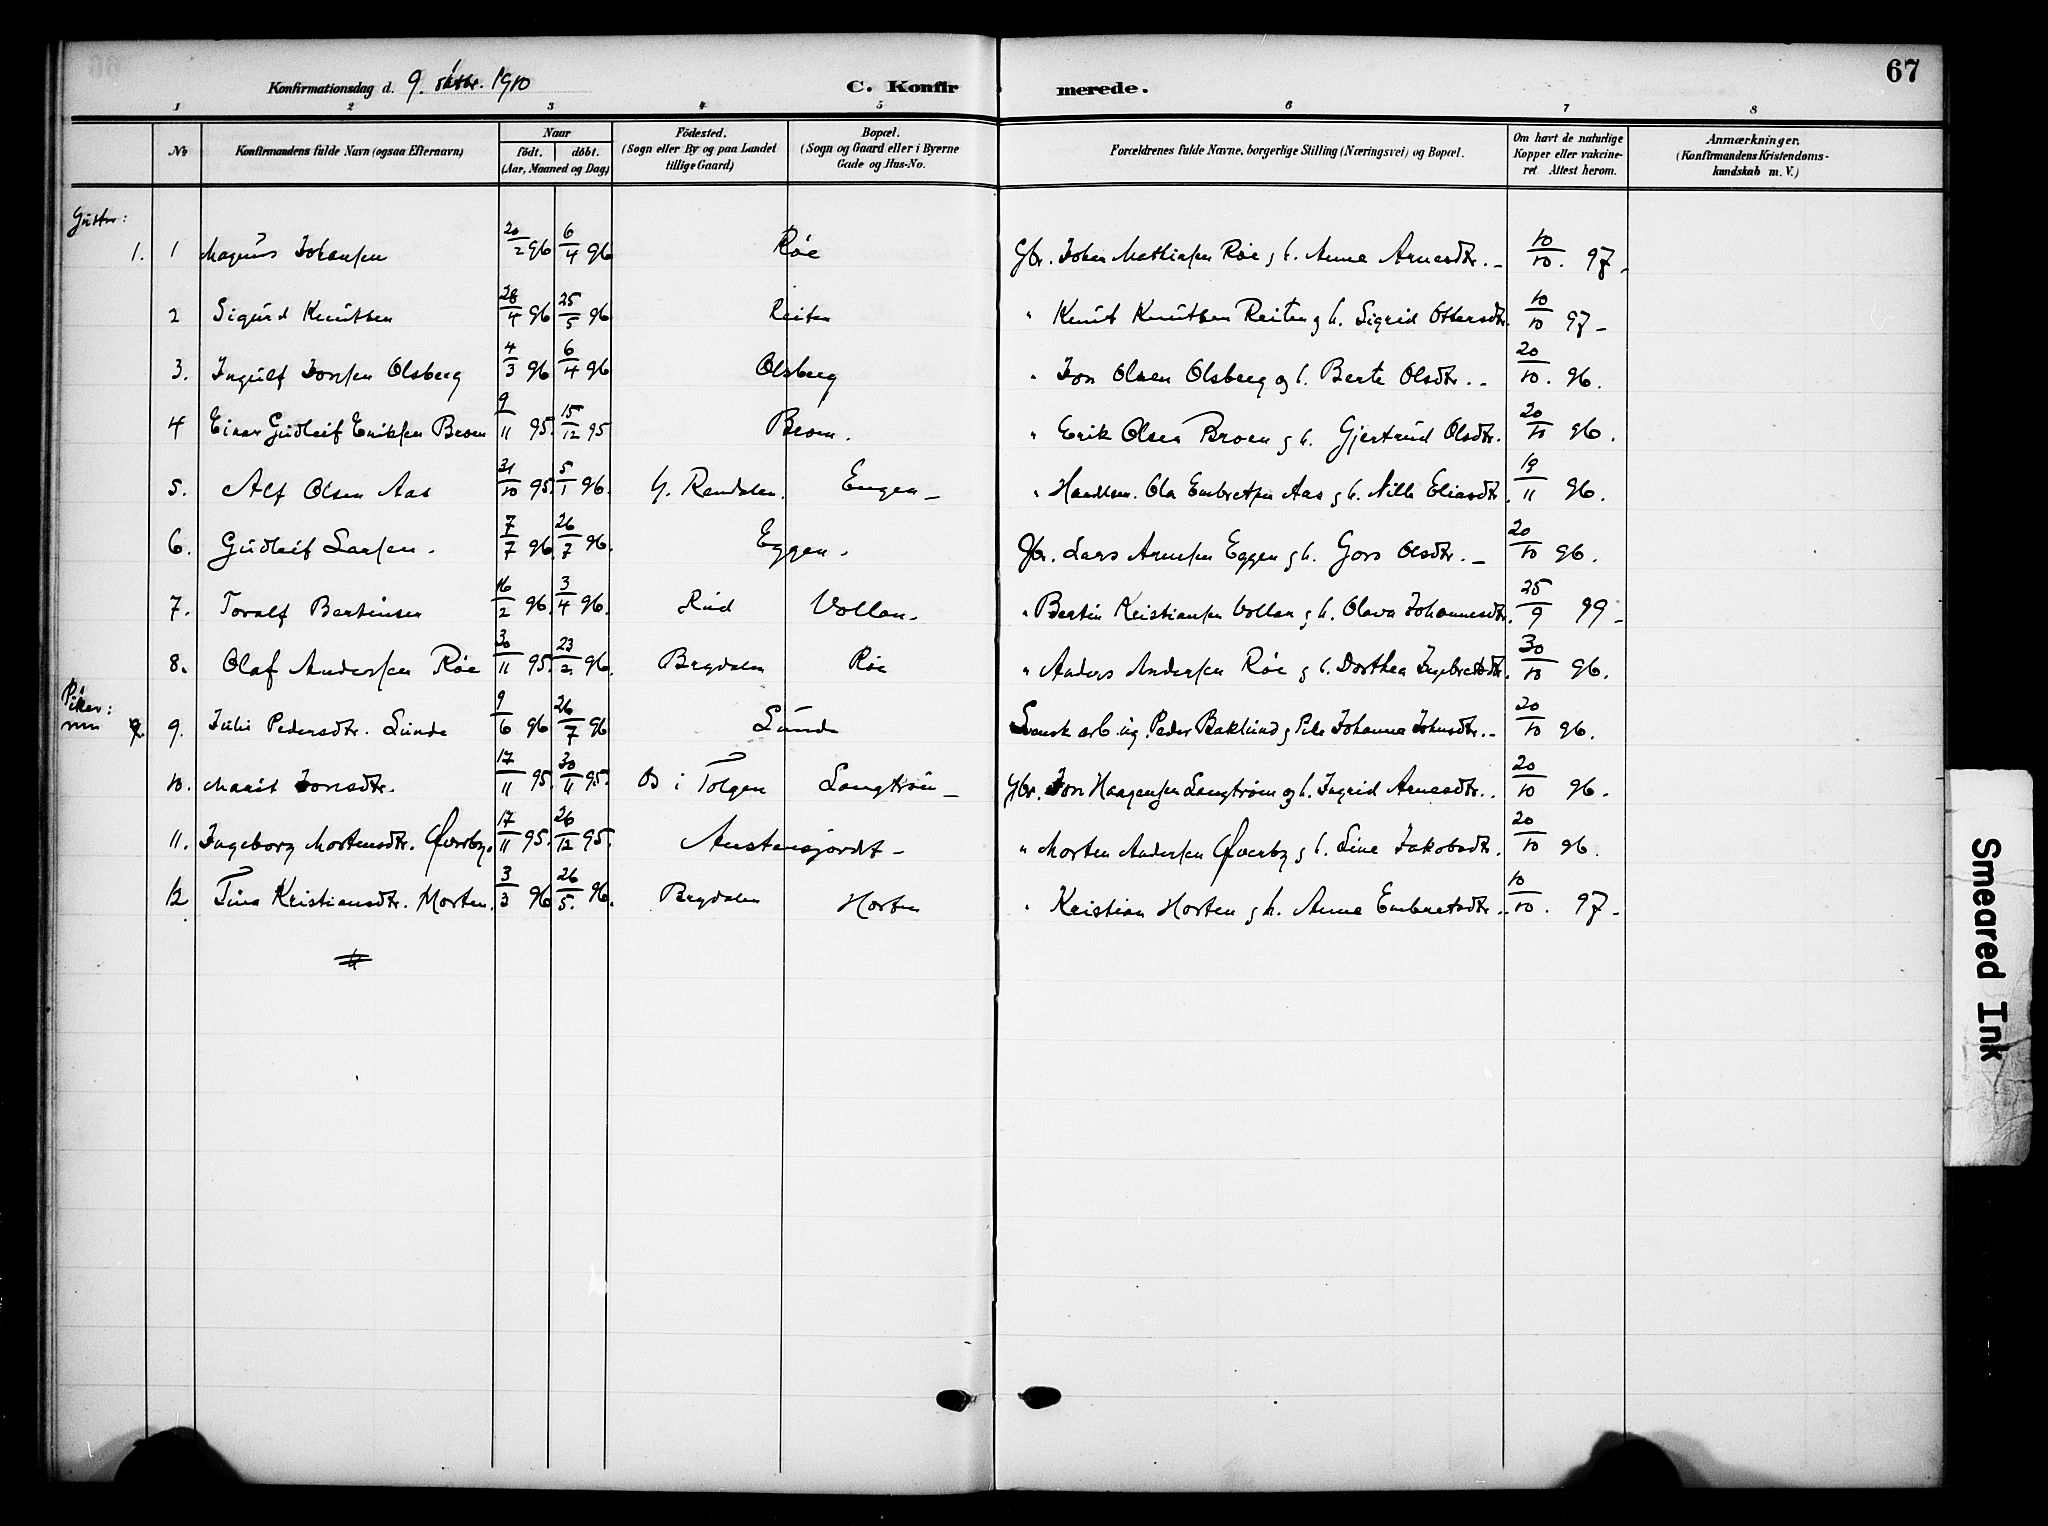 67
Konfirmationsdag d. 9. oktbr. 1910 C. Konfirmerede.
1 2 3 4 5 6 7 8
No Konfirmandens fulde Navn (ogsaa Efternavn) Naar født. døbt. (Aar, Maaned og Dag) Födested. (Sogn eller By og paa Landet tillige Gaard) Bopæl. (Sogn og Gaard eller i Byerne Gade og Hus-No. Forældrenes fulde Navne, borgerlige Stilling (Næringsvei) og Bopæl. Om havt de naturlige Kopper eller vakcineret Attest herom. Anmærkninger. (Konfirmandens Kristendomskundskab m. V.)
Gutter:
1. 1 Magnus Johansen 20/2 96 6/4 96 Røe Gbr. Johan Mathiasen Røe g h. Anne Arnesdtr. – 10/10. 97 –
2 Sigurd Knutsen 28/4 96 25/5 96 Reiten " Knut Knutsen Reiten g h. Sigrid Ottersdtr. 10/10 97 –
3. Ingulf Jonsen Olsberg 4/3 96 6/4 96 Olsberg " Jon Olsen Olsberg og h. Berte Olsdtr. – 20/10. 96.
4 Einar Gudleif Eriksen Broen 9/11 95. 15/12 95 Broen. " Erik Olsen Broen g h. Gjertrud Olsdtr. 20/10 96.
5. Alf Olsen Aas 31/10 95. 5/1 96. Y. Rendalen. Engen – " Handlsm. Ola Embretsen Aas g h. Nille Eliasdtr. 19/11 96.
6. Gudleif Larsen. 7/7 96. 26/7 96. Eggen. Gbr. Lars Arnesen Eggen g h. Goro Olsdtr. – 20/10 96.
7. Toralf Bertinsen 16/2 96. 3/4 96. Rud Vollan – " Bertin Kristiansen Vollan g h. Olava Johannesdtr. 25/9 99 –
8. Olaf Andersen Røe 30/11 95. 23/2. 96. Brydalen Røe " Anders Andersen Røe g h. Dorthea Ingebretsdtr. 30/10 96.
Piker:
9. 9. Julie Pedersdtr. Lunde 9/6 96 26/7 96 Lunde Svensk arb. ug. Peder Baklund g Pike Johanne Johnsdtr. – 20/10 96.
10. Marit Jonsdtr. 17/11 95. 30/11 95. Os i Tolgen Langtrøen – Gbr. Jon Haagensen Langtrøen og h. Ingrid Arnesdtr. 20/10 96.
11. Ingeborg Mortensdtr. Øverby. 17/11 95. 26/12 95. Austensjordet – " Morten Andersen Øverby g h. Line Jakobsdtr. 20/10 96.
12 Tina Kristiansdtr. Horten. 3/3 96 26/5. 96. Brydalen Horten " Kristian Horten g h. Anne Embretsdtr. 10/10. 97 –
Smeared Ink